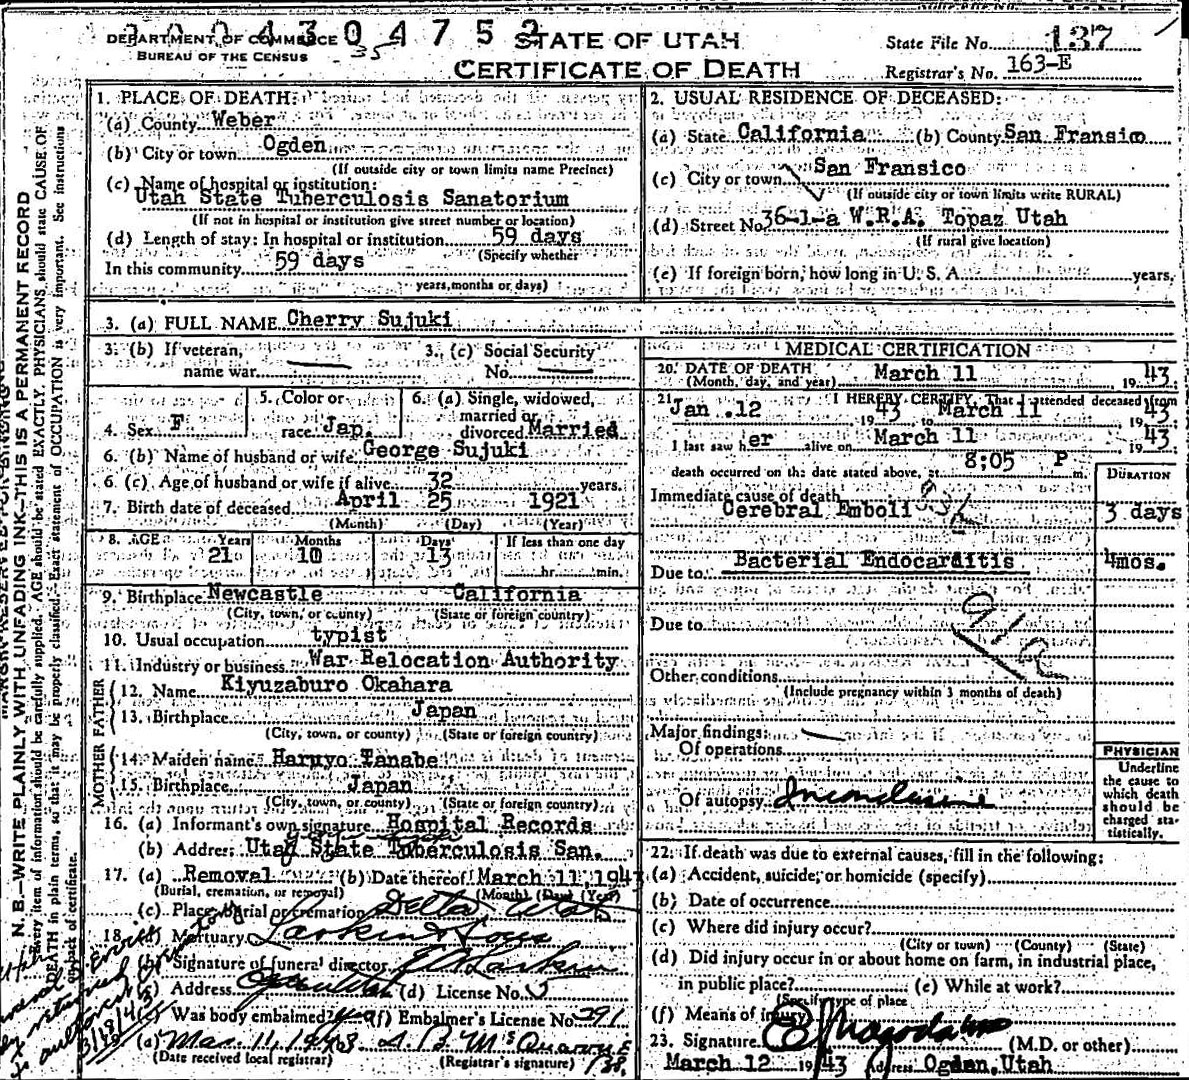 3 0 0 4 3 0 4 7 5 2
DEPARTMENT OF COMMERCE
BUREAU OF THE CENSUS
35
STATE OF UTAH
CERTIFICATE OF DEATH
State File No. 137
Registrar's No. 163-E
N. B.—WRITE PLAINLY WITH UNFADING INK—THIS IS A PERMANENT RECORD
Every item of information should be carefully supplied. AGE should be stated EXACTLY. PHYSICIANS should state CAUSE OF
DEATH in plain terms, so that it may be properly classified. Exact statement of OCCUPATION is very important. See instructions
on back of certificate.
1. PLACE OF DEATH:
(a) County Weber
(b) City or town Ogden
(If outside city or town limits name Precinct)
(c) Name of hospital or institution:
Utah State Tuberculosis Sanatorium
(If not in hospital or institution give street number or location)
(d) Length of stay: In hospital or institution 59 days
(Specify whether
In this community 59 days
years, months or days)
2. USUAL RESIDENCE OF DECEASED:
(a) State California (b) County San Fransico
(c) City or town San Fransico
(If outside city or town limits write RURAL)
(d) Street No. 36-1-a W.R.A. Topaz Utah
(If rural give location)
(e) If foreign born, how long in U. S. A. years.
3. (a) FULL NAME Cherry Sujuki
3. (b) If veteran,
name war
3. (c) Social Security
No.
4. Sex F
5. Color or
race Jap.
6. (a) Single, widowed,
married or
divorced Married
6. (b) Name of husband or wife George Sujuki
6. (c) Age of husband or wife if alive 32 years.
7. Birth date of deceased April 25 1921
(Month) (Day) (Year)
8. AGE Years Months Days If less than one day
21 10 13 hr. min.
9. Birthplace Newcastle California
(City, town, or county) (State or foreign country)
10. Usual occupation typist
11. Industry or business War Relocation Authority
FATHER
12. Name Kiyuzaburo Okahara
13. Birthplace Japan
(City, town, or county) (State or foreign country)
MOTHER
14. Maiden name Haruyo Tanabe
15. Birthplace Japan
(City, town, or county) (State or foreign country)
16. (a) Informant's own signature Hospital Records
(b) Address Utah State Tuberculosis San.
17. (a) Removal (b) Date thereof March 11, 1943
(Burial, cremation, or removal) (Month) (Day) (Year)
(c) Place, burial or cremation Delta Utah
18. (a) Mortuary Larkin & Sons
(b) Signature of funeral director
(c) Address Ogden Utah (d) License No. 5
(e) Was body embalmed? yes (f) Embalmer's License No. 291
(a) Mar 11, 1943
(Date received local registrar) (Registrar's signature)
MEDICAL CERTIFICATION
20. DATE OF DEATH
(Month, day, and year) March 11, 1943
21. I HEREBY CERTIFY, That I attended deceased from
Jan. 12 1943 to March 11 1943
I last saw her alive on March 11 1943
death occurred on the date stated above, at 8:05 P m.
DURATION
Immediate cause of death
Cerebral Emboli 3 days
Due to Bacterial Endocarditis 4mos.
Due to
Other conditions
(Include pregnancy within 3 months of death)
Major findings:
Of operations
Of autopsy Inconclusive
PHYSICIAN
Underline
the cause to
which death
should be
charged sta-
tistically.
22. If death was due to external causes, fill in the following:
(a) Accident, suicide, or homicide (specify)
(b) Date of occurrence
(c) Where did injury occur?
(City or town) (County) (State)
(d) Did injury occur in or about home on farm, in industrial place,
in public place? (e) While at work?
(Specify type of place
(f) Means of injury
23. Signature (M.D. or other)
March 12 1943 Address Ogden, Utah